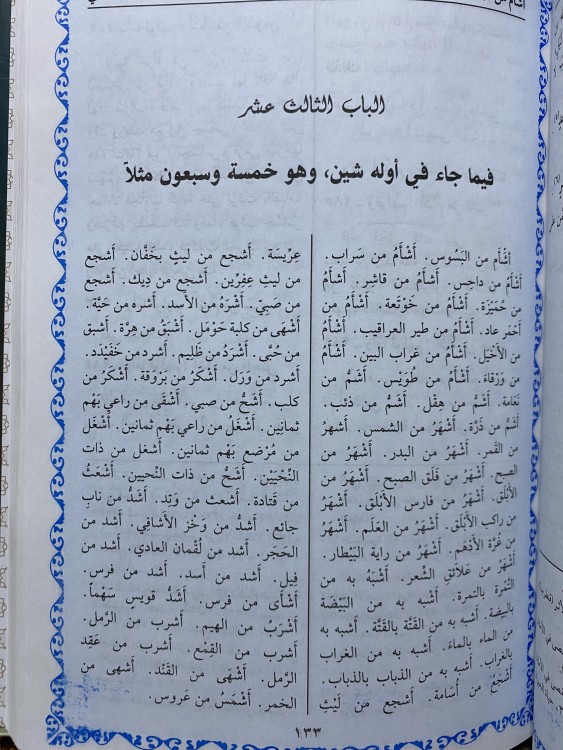 الباب الثالث عشر
فيما جاء في أوله شين، وهو خمسة وسبعون مثلاً
أشأم من البَسُوس. أَشْأَمُ من سَراب.
أشأم من داحِس. أَشْأَمُ من قاشِر. أَشْأَمُ
من حُمَيْرَة. أَشْأَمُ من خَوْتَعة. أَشْأَمُ من
أحْمَر عاد. أَشْأَمُ من طير العراقيب. أَشْأَمُ
من الأَخْيَل. أَشْأَمُ من غراب البين. أَشْأَمُ
من وَرْقاءَ. أَشْأَمُ من طُوَيْس. أَشَمُّ من
نَعامة. أَشَمُّ من هِقْل. أَشَمُّ من ذئب.
أَشَمُّ من ذَرَّة. أَشْهَرُ من الشمس. أَشهرُ
من القمر. أَشْهَرُ من البدر. أَشْهَرُ من
الصبح. أَشْهَرُ من فَلَق الصبح. أَشْهَرُ من
الأَبْلَق. أَشْهَرُ من فارس الأَبْلَق. أَشْهَرُ
من راكب الأَبْلَق. أَشْهَرُ من العلَم. أَشْهَرُ
من غُرَّة الأَدْهَم. أَشْهَرُ من راية البَيْطار.
أَشْهَرُ من علائق الشَّعر. أَشْبَهُ به من
التَّمْرة بالتمرة. أَشْبه به من البَيْضَة
بالبيضة. أشبه به من القُذَّة بالقُذَّة. أشبه به
من الماء بالماءِ. أشبه به من الغراب
بالغراب. أشبه به من الذباب بالذباب.
أَشْجَعُ من أُسَامة. أشجع من لَيْثِ
عِرِّيسَة. أشجع من ليثٍ بخَفَّان. أشجع
من ليثِ عِفِرِّين. أشجع من دِيك. أشجع
من صَبِيّ. أَشْرَهُ من الأسد. أشره من حَيَّة.
أَشْهَى من كلبة حَوْمَل. أَشْبَقُ من هِرَّة. أشبق
من حُبَّى. أَشْرَدُ من ظَلِيم. أشرد من خَفَيْدَد.
أشرد من وَرَل. أَشْكَرُ من بَرْوَقة. أَشْكَرُ من
كلب. أَشَحُّ من صبي. أَشْقَى من راعي بَهْم
ثمانين. أَشْغَلُ من راعي بَهْم ثمانين. أَشْغَل
من مُرْضع بَهْم ثمانين. أشغل من ذات
النِّحْيَيْن. أَشَحُّ من ذات النِّحيين. أَشْعَثُ
من قَتادة. أشعث من وَتِد. أَشَدُّ من نابٍ
جائع. أشدُّ من وَخْز الأَشافِي. أشد من
الحَجَر. أشد من لُقْمان العادي. أشد من
فِيل. أشد من أسد. أشد من فرس.
أَشْأَى من فرس. أَشَدُّ قويسٍ سَهْماً.
أَشْرَبُ من الهيم. أشرب من الرَّمل.
أشرب من القِمْع. أشرب من عَقِد
الرَّمل. أَشْهَى من القَنْد. أشهى من
الخمر. أَشْمَسُ من عَروس.
١٣٣